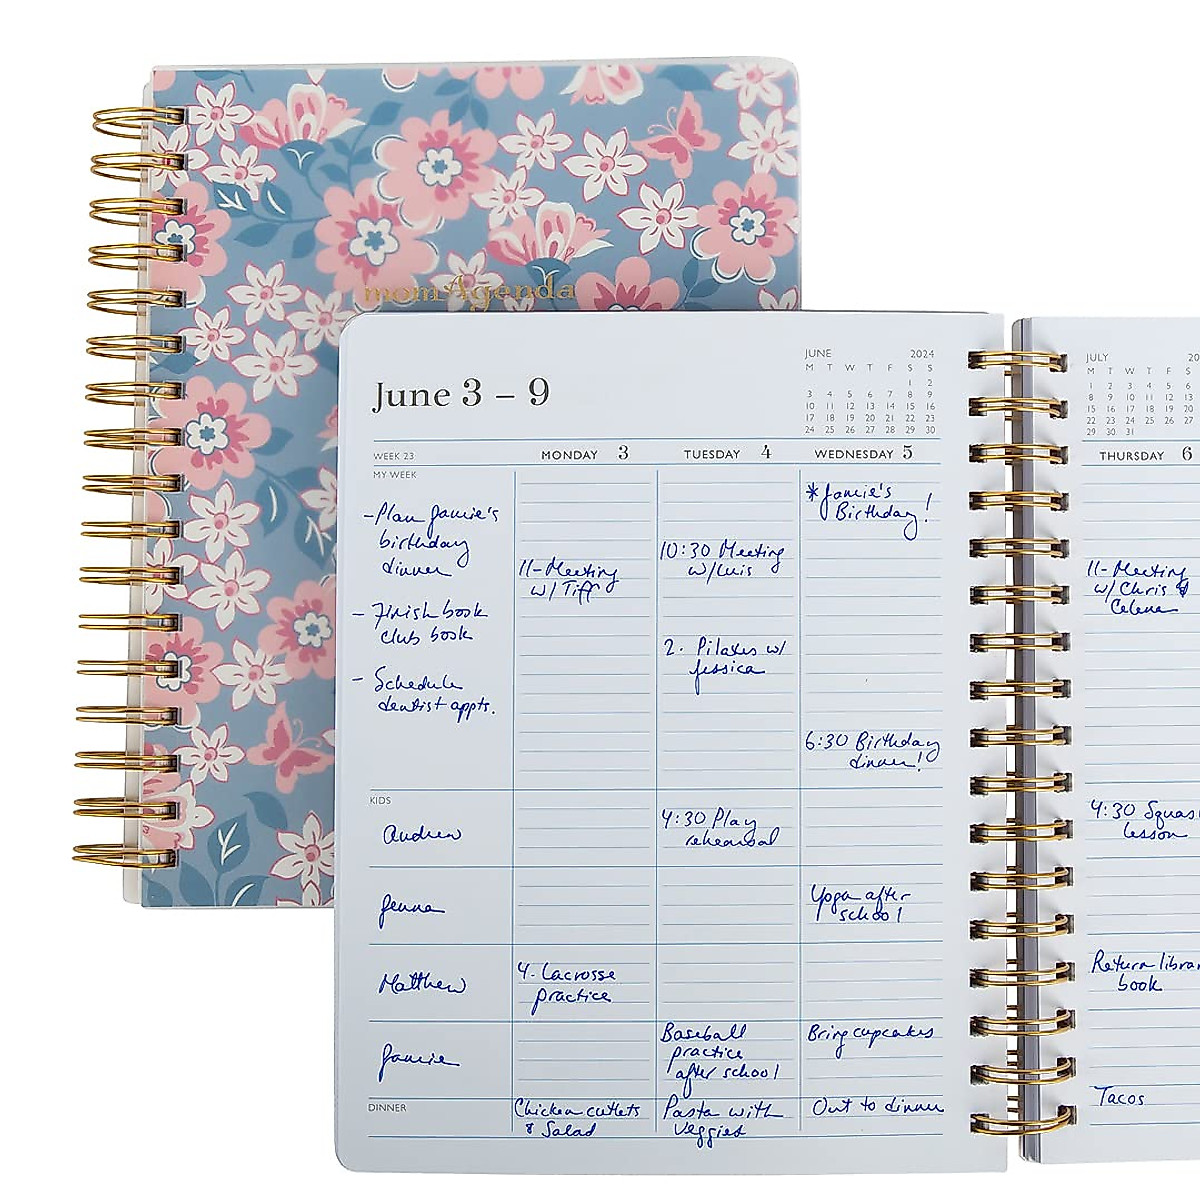 momAgenda
June 3 – 9
JUNE 2024
M T W T F S S
1 2
3 4 5 6 7 8 9
10 11 12 13 14 15 16
17 18 19 20 21 22 23
24 25 26 27 28 29 30
WEEK 23
MONDAY 3
TUESDAY 4
WEDNESDAY 5
MY WEEK
- Plan Jamie's
birthday
dinner
- Finish book
club book
- Schedule
dentist appts.
11 - Meeting
w/ Tiff
10:30 Meeting
w/ Luis
2 - Pilates w/
Jessica
*Jamie's
Birthday!
6:30 Birthday
dinner!
KIDS
Andrew
4:30 Play
rehearsal
Jenna
Yoga after
school
Matthew
4 - Lacrosse
practice
Jamie
Baseball
practice
after school
Bring cupcakes
DINNER
Chicken cutlets
& Salad
Pasta with
Veggies
Out to dinner
JULY 20
M T W T F S
1 2 3 4 5 6
8 9 10 11 12 13
15 16 17 18 19 20
22 23 24 25 26 27
29 30 31
THURSDAY 6
11 - Meeting
w/ Chris &
Celena
4:30 Squas
lesson
Return librar
book
Tacos